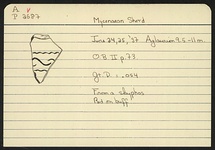 A
P 2687
Mycenaean Sherd
June 24, 25, '37 Aglaureum 9.5-11 m.
O.B. II p. 73
Gt. D. = .054
From a skyphos
Red on buff